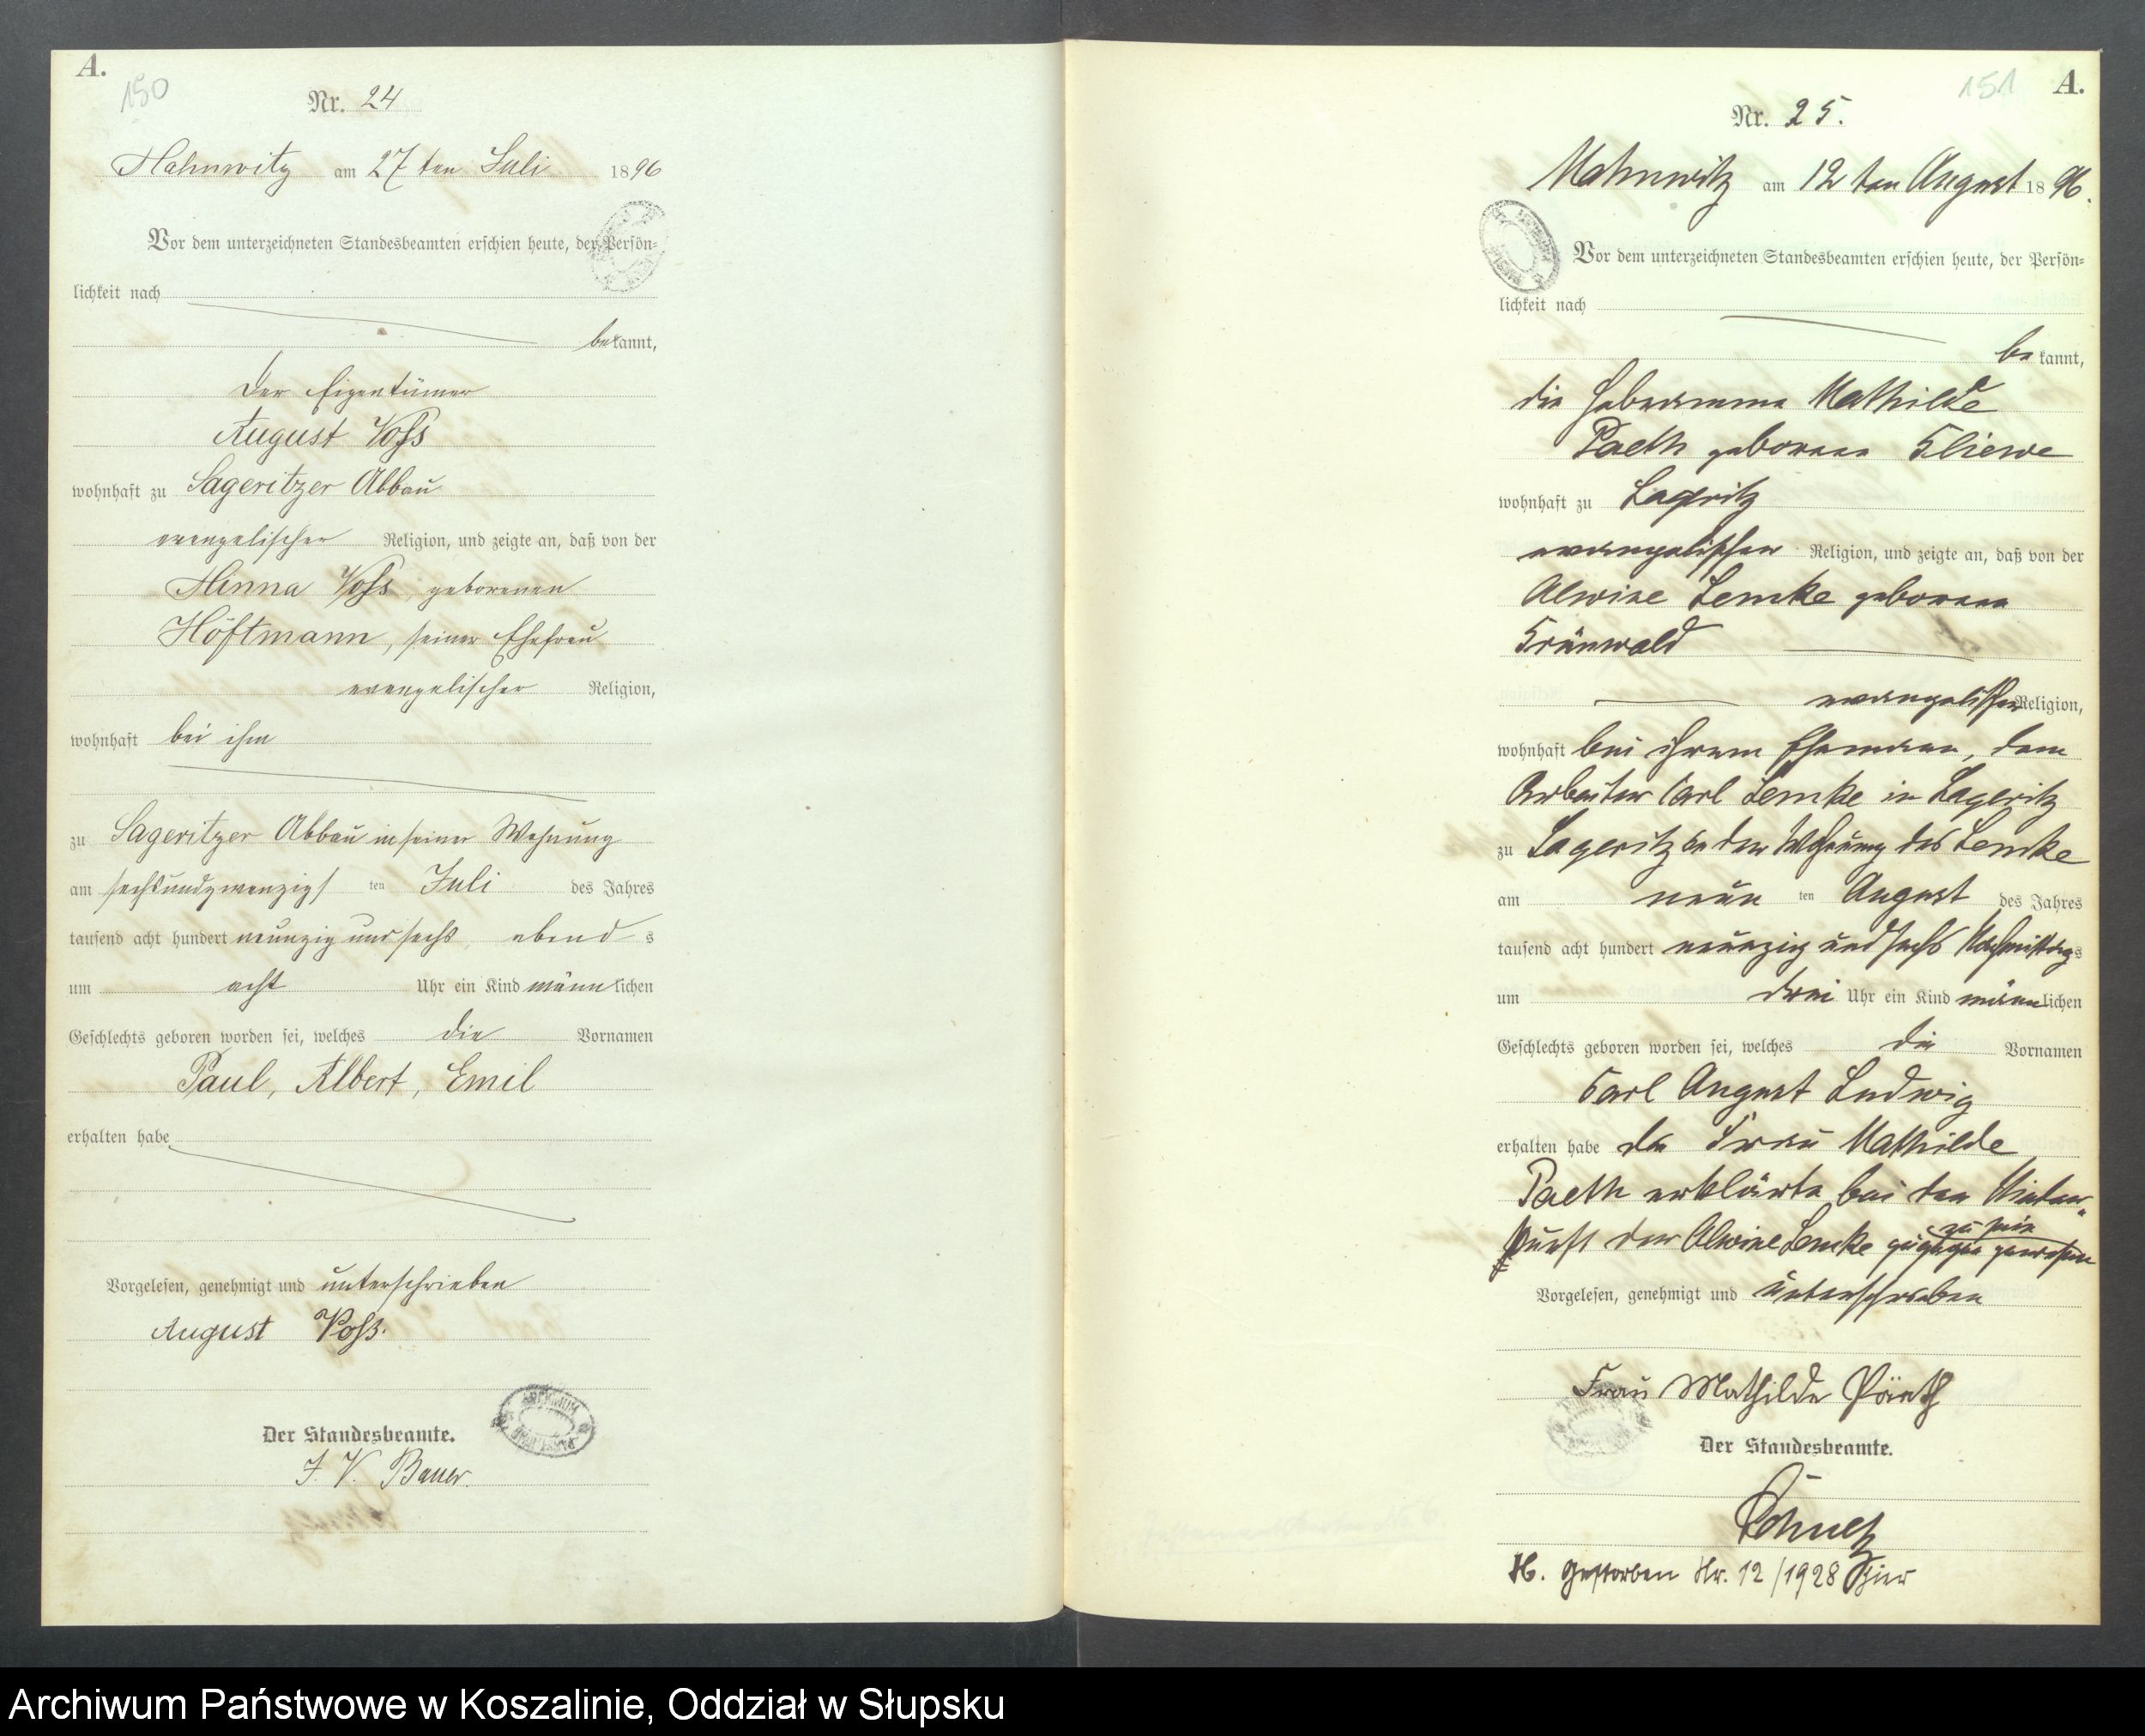 A.
150
Nr. 24
Mahnwitz am 27 ten Juli 1896
Vor dem unterzeichneten Standesbeamten erschien heute, der Persön=
lichkeit nach
bekannt,
der Eigentümer
August Voß
wohnhaft zu Sageritzer Abbau
evangelischer Religion, und zeigte an, daß von der
Minna Voß, geborenen
Höftmann, seiner Ehefrau
evangelischer Religion,
wohnhaft bei ihm
zu Sageritzer Abbau in seiner Wohnung
am sechsundzwanzigs ten Juli des Jahres
tausend acht hundert neunzig und sechs, abend s
um acht Uhr ein Kind männlichen
Geschlechts geboren worden sei, welches die Vornamen
Paul, Albert, Emil
erhalten habe
Vorgelesen, genehmigt und unterschrieben
August Voß.
Der Standesbeamte.
J. V. Bauer.
151
A.
Nr. 25.
Mahnwitz am 12 ten August 1896.
Vor dem unterzeichneten Standesbeamten erschien heute, der Persön=
lichkeit nach
bekannt,
die Hebeamme Mathilde
Paeth geborene Kliewe
wohnhaft zu Sageritz
evangelischer Religion, und zeigte an, daß von der
Alwine Lemke geborene
Grünwald
evangelischer Religion,
wohnhaft bei ihrem Ehemann, dem
Arbeiter Carl Lemke in Sageritz
zu Sageritz in der Wohnung des Lemke
am neun ten August des Jahres
tausend acht hundert neunzig und sechs Nachmittags
um drei Uhr ein Kind männlichen
Geschlechts geboren worden sei, welches die Vornamen
Carl August Ludwig
erhalten habe die Frau Mathilde
Paeth erklärte bei der Nieder„
kunft der Alwine Lemke zugegen gewesen
zu sein
Vorgelesen, genehmigt und unterschrieben
Frau Mathilde Päeth
Der Standesbeamte.
H. Gestorben Nr. 12/1928 hier
Archiwum Państwowe w Koszalinie, Oddział w Słupsku